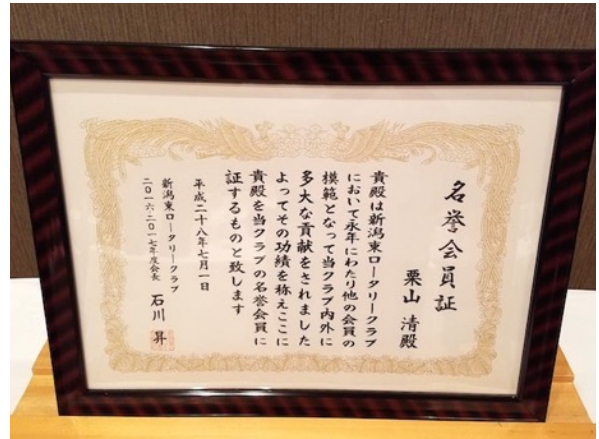 名誉会員証
栗山 清殿
貴殿は新潟東ロータリークラブ
において永年にわたり他の会員の
模範となって当クラブ内外に
多大な貢献をされました
よってその功績を称えここに
貴殿を当クラブの名誉会員に
証するものと致します
平成二十八年七月一日
新潟東ロータリークラブ
二〇一六-二〇一七年度会長 石川 昇